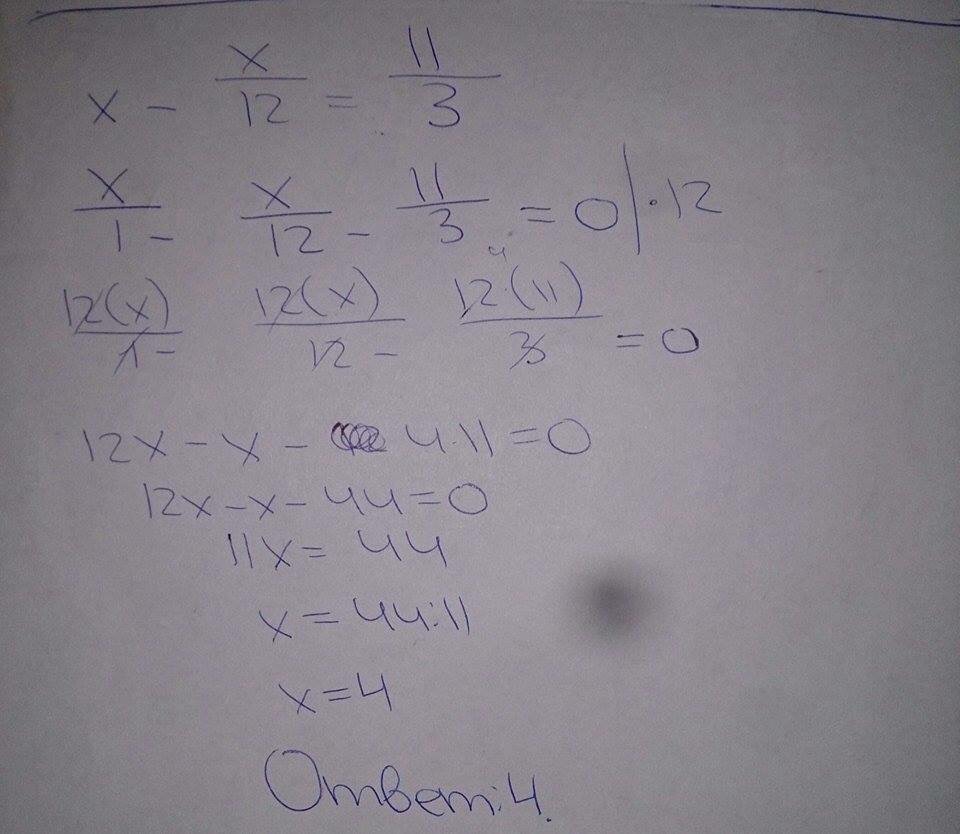 x - x/12 = 11/3
x/1 - x/12 - 11/3 = 0 | · 12
12(x)/1 - 12(x)/12 - 12(11)/3 4 = 0
12x - x - 4·11 = 0
12x - x - 44 = 0
11x = 44
x = 44:11
x = 4
Ответ: 4.